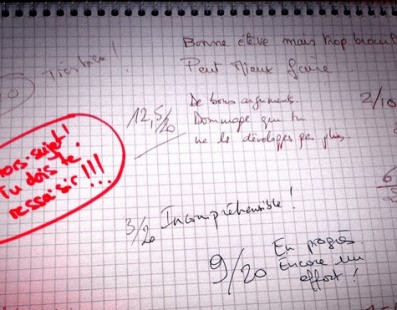 Très bien !
Bonne élève mais trop
Peut Mieux faire
12,5/20
De bons arguments.
Dommage que tu
ne les développes pas plus
2/10
hors-sujet !
Tu dois te
ressaisir !!!
6
3/20 Incompréhensible !
9/20
En progrès.
Encore un
effort !